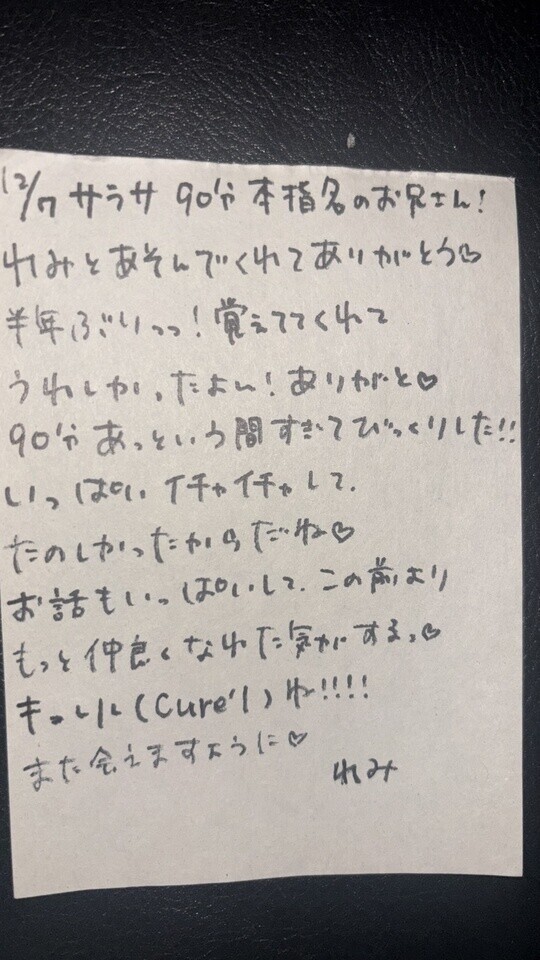 12/7 サラサ 90分 本指名のお兄さん!
れみとあそんでくれてありがとう♡
半年ぶりっっ!覚えててくれて
うれしかったよん!ありがと♡
90分あっという間すぎてびっくりした!!
いっぱいイチャイチャして、
たのしかったからだね♡
お話もいっぱいして、この前より
もっと仲良くなれた気がするっ♡
キュレル(Cure'l)ね!!!!
また会えますように♡
れみ